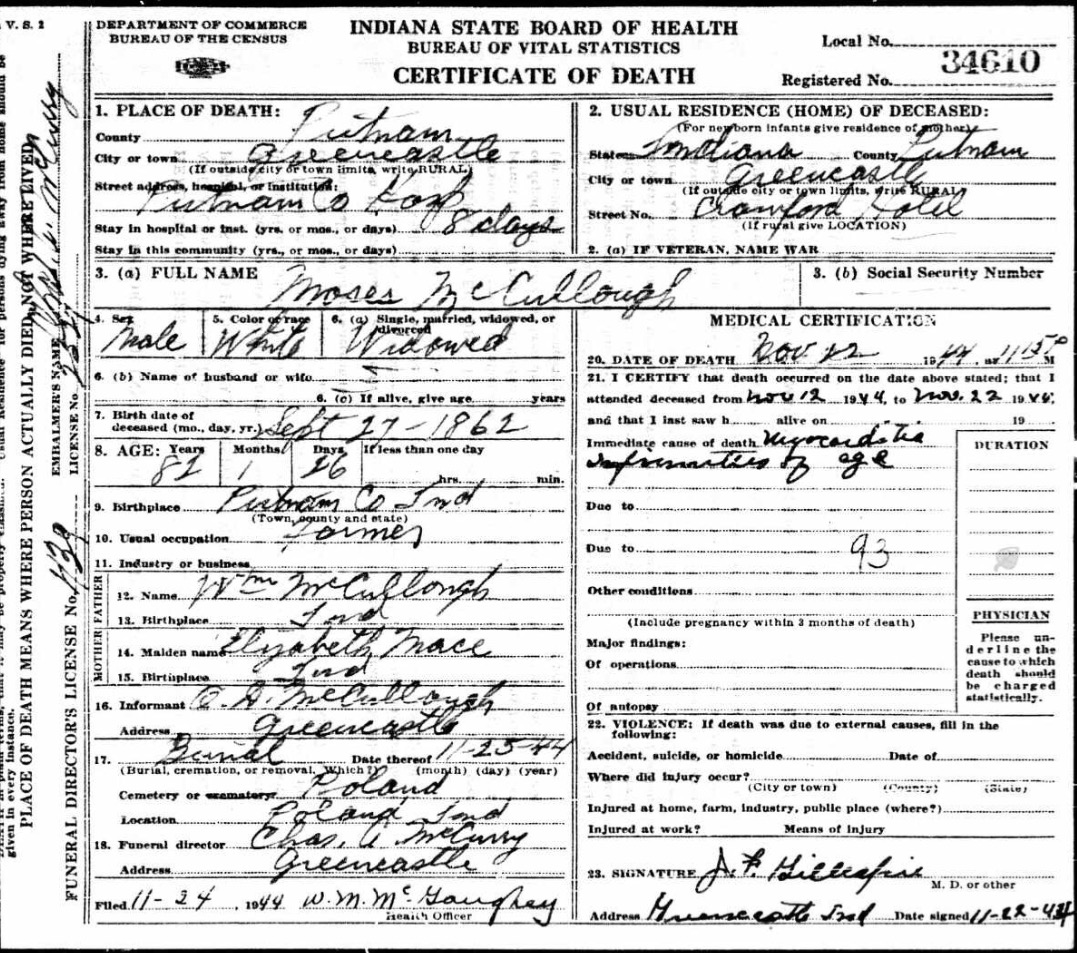 V. S. 2
DEPARTMENT OF COMMERCE
BUREAU OF THE CENSUS
INDIANA STATE BOARD OF HEALTH
BUREAU OF VITAL STATISTICS
CERTIFICATE OF DEATH
Local No.
Registered No. 34610
1. PLACE OF DEATH:
County Putnam
City or town Greencastle
(If outside city or town limits, write RURAL)
Street address, hospital, or institution:
Putnam Co Hosp
Stay in hospital or inst. (yrs. or mos., or days) 8 days
Stay in this community (yrs., or mos., or days)
2. USUAL RESIDENCE (HOME) OF DECEASED:
(For newborn infants give residence of mother)
State Indiana County Putnam
City or town Greencastle
(If outside city or town limits, write RURAL)
Street No. Crawford Hotel
(If rural give LOCATION)
2. (a) IF VETERAN, NAME WAR
3. (a) FULL NAME Moses McCullough
3. (b) Social Security Number
4. Sex Male
5. Color or race White
6. (a) Single, married, widowed, or divorced Widowed
6. (b) Name of husband or wife
6. (c) If alive, give age years
7. Birth date of
deceased (mo., day, yr.) Sept 27-1862
8. AGE: Years 82 Months 1 Days 26 If less than one day
hrs. min.
9. Birthplace Putnam Co Ind
(Town, county and state)
10. Usual occupation Farmer
11. Industry or business
FATHER
12. Name Wm McCullough
13. Birthplace Ind
MOTHER
14. Maiden name Elizabeth Mace
15. Birthplace Ind
16. Informant O. D. McCullough
Address Greencastle
17. Burial Date thereof 11-25-44
(Burial, cremation, or removal. Which?) (month) (day) (year)
Cemetery or crematory Poland
Location Poland Ind
18. Funeral director Chas. A McCurry
Address Greencastle
Filed 11-24, 1944 W. M. McGaughey
Health Officer
MEDICAL CERTIFICATION
20. DATE OF DEATH Nov 22 1944, at 11:15 P M
21. I CERTIFY that death occurred on the date above stated; that I
attended deceased from Nov 12 1944, to Nov. 22 1944,
and that I last saw h alive on 19
Immediate cause of death Myocarditis
Infirmities of age
DURATION
Due to
Due to 93
Other conditions
(Include pregnancy within 3 months of death)
Major findings:
Of operations
Of autopsy
PHYSICIAN
Please un-
derline the
cause to which
death should
be charged
statistically.
22. VIOLENCE: If death was due to external causes, fill in the
following:
Accident, suicide, or homicide Date of
Where did injury occur?
(City or town) (County) (State)
Injured at home, farm, industry, public place (where?)
Injured at work? Means of injury
23. SIGNATURE J. F. Gillespie
M. D. or other
Address Greencastle Ind Date signed 11-22-44
given in every instance.
PLACE OF DEATH MEANS WHERE PERSON ACTUALLY DIED, NOT WHERE LIVED
EMBALMER'S NAME
LICENSE No.
FUNERAL DIRECTOR'S LICENSE No.